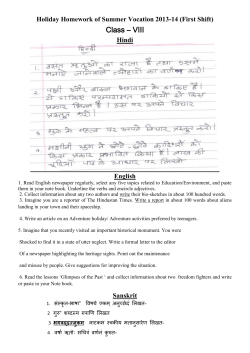 Holiday Homework of Summer Vocation 2013-14 (First Shift)
Class – VIII
Hindi
हिन्दी
1. वसंत ऋतुओं का राजा है तथा इसमें
मनाये जानेवाले त्योहारों का वर्णन करो।
2. पक्षी और बादल भगवान के डाकिए हैं।
प्रकार भिन्न हैं। इस पर अपने विचार
प्रस्तुत करो।
3. के महत्व पर अपने विचार प्रस्तुत करो।
4. मशीनी युग में
किस प्रकार प्रभावित किया है। भारत की
के आधार पर लिखो।
English
1. Read English newspaper regularly, select any five topics related to Education/Environment, and paste
them in your note book. Underline the verbs and avoids adjectives.
2. Collect information about any two authors and write their bio-sketches in about 100 hundred words.
3. Imagine you are a reporter of The Hindustan Times. Write a report in about 100 words about aliens
landing in your town and their spaceship.
4. Write an article on an Adventure holiday/ Adventure activities preferred by teenagers.
5. Imagine that you recently visited an important historical monument. You were
Shocked to find it is a state of utter neglect. Write a formal letter to the editor
Of a newspaper highlighting the heritage sights. Point out the maintenance
and misuse by people. Give suggestions for improving the situation.
6. Read the lessons 'Glimpses of the Past ' and collect information about two freedom fighters and write
or paste in your Note book.
Sanskrit
1. संस्कृत-भाषा" विषये एकम् अनुच्छेदं लिखत-
2. गुरु' शब्दस्य रूपाणि लिखत
3. नाटकस्य स्वकीय मतानुसारेण लिखत-
4. वर्षा ऋतोः सचित्रं वर्णनं कुरुत-